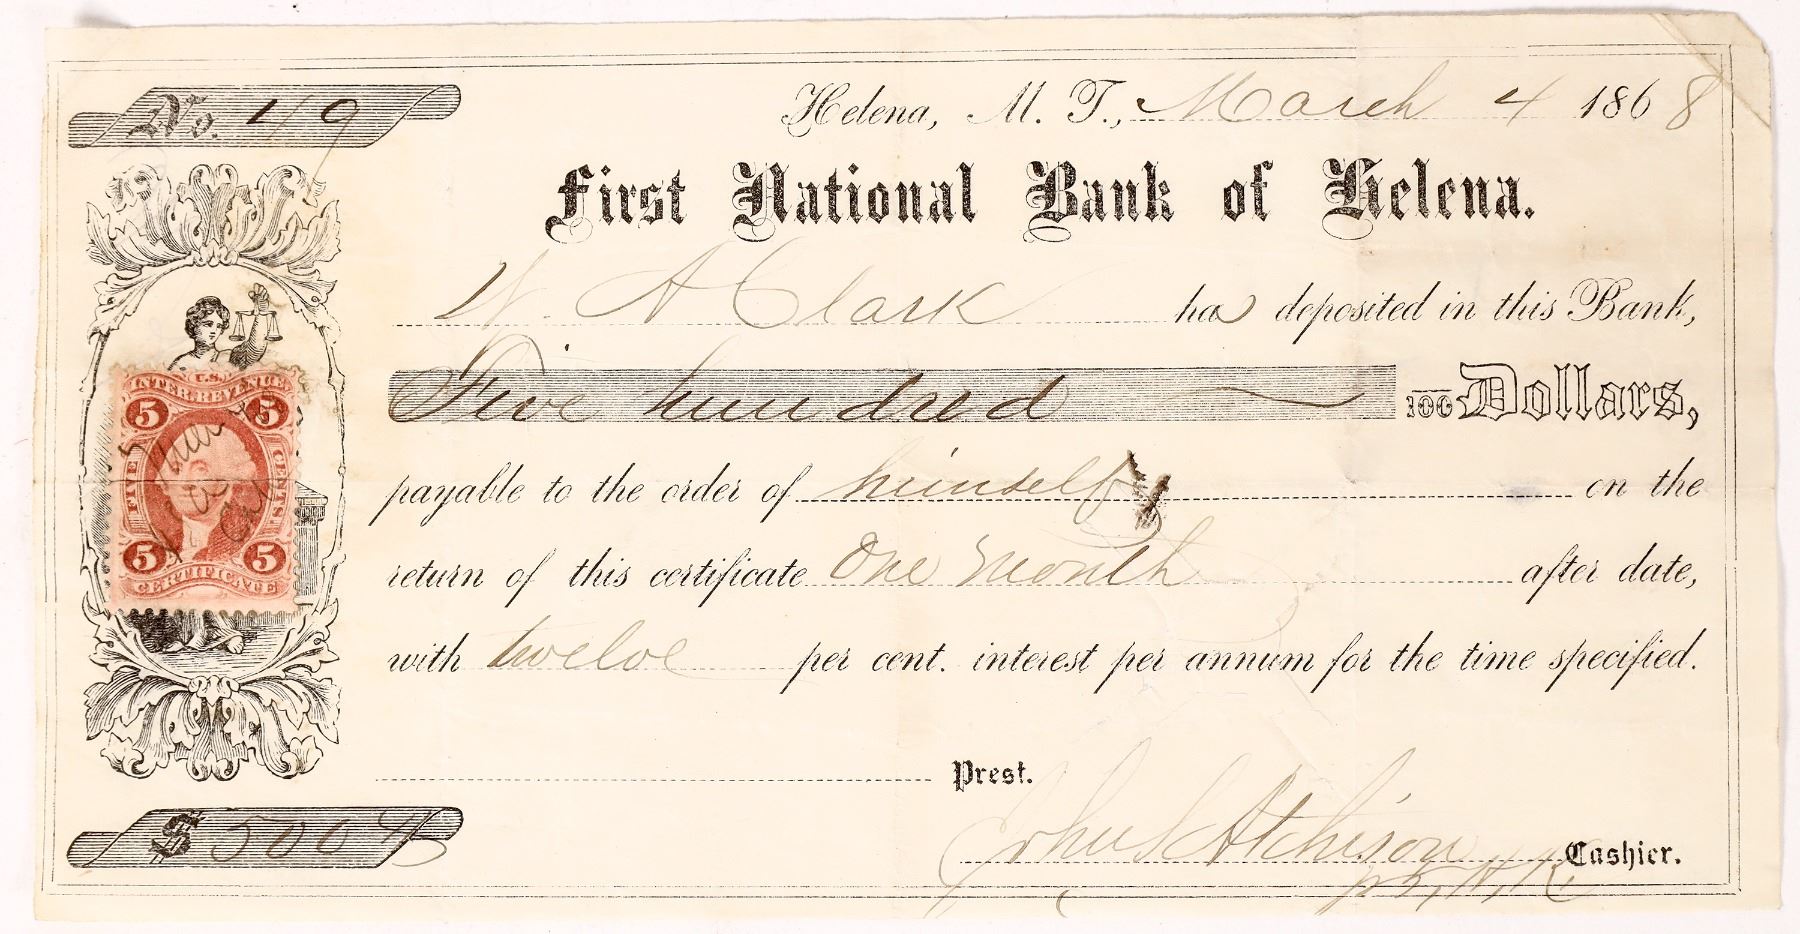 No. 49
Helena, M. T., March 4 1868
First National Bank of Helena.
W. A Clark has deposited in this Bank,
Five hundred /100 Dollars,
payable to the order of himself on the
return of this certificate One month after date,
with twelve per cent. interest per annum for the time specified.
Prest.
John S Atchison Cashier.
$ 500
INTER. REVENUE
U.S.
5 5
FIVE CENTS
5 5
CERTIFICATE